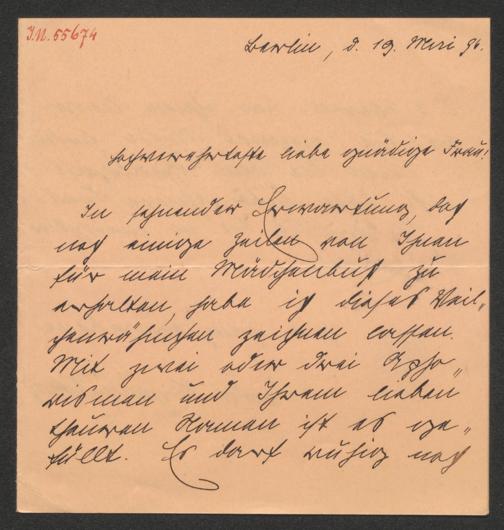 J.N. 55674
Berlin, d. 19. Mai 96.
Hochverehrteste liebe gnädige Frau!
In sehnender Erwartung, daß
noch einige Zeilen von Ihnen
für mein Mädchenbuch zu
erhalten, habe ich dieses Veil-
zeichnen lassen.
Mit zwei oder drei Apho-
rismen und Ihrem lieben
theuren Namen ist es ge-
füllt. Es darf ruhig noch